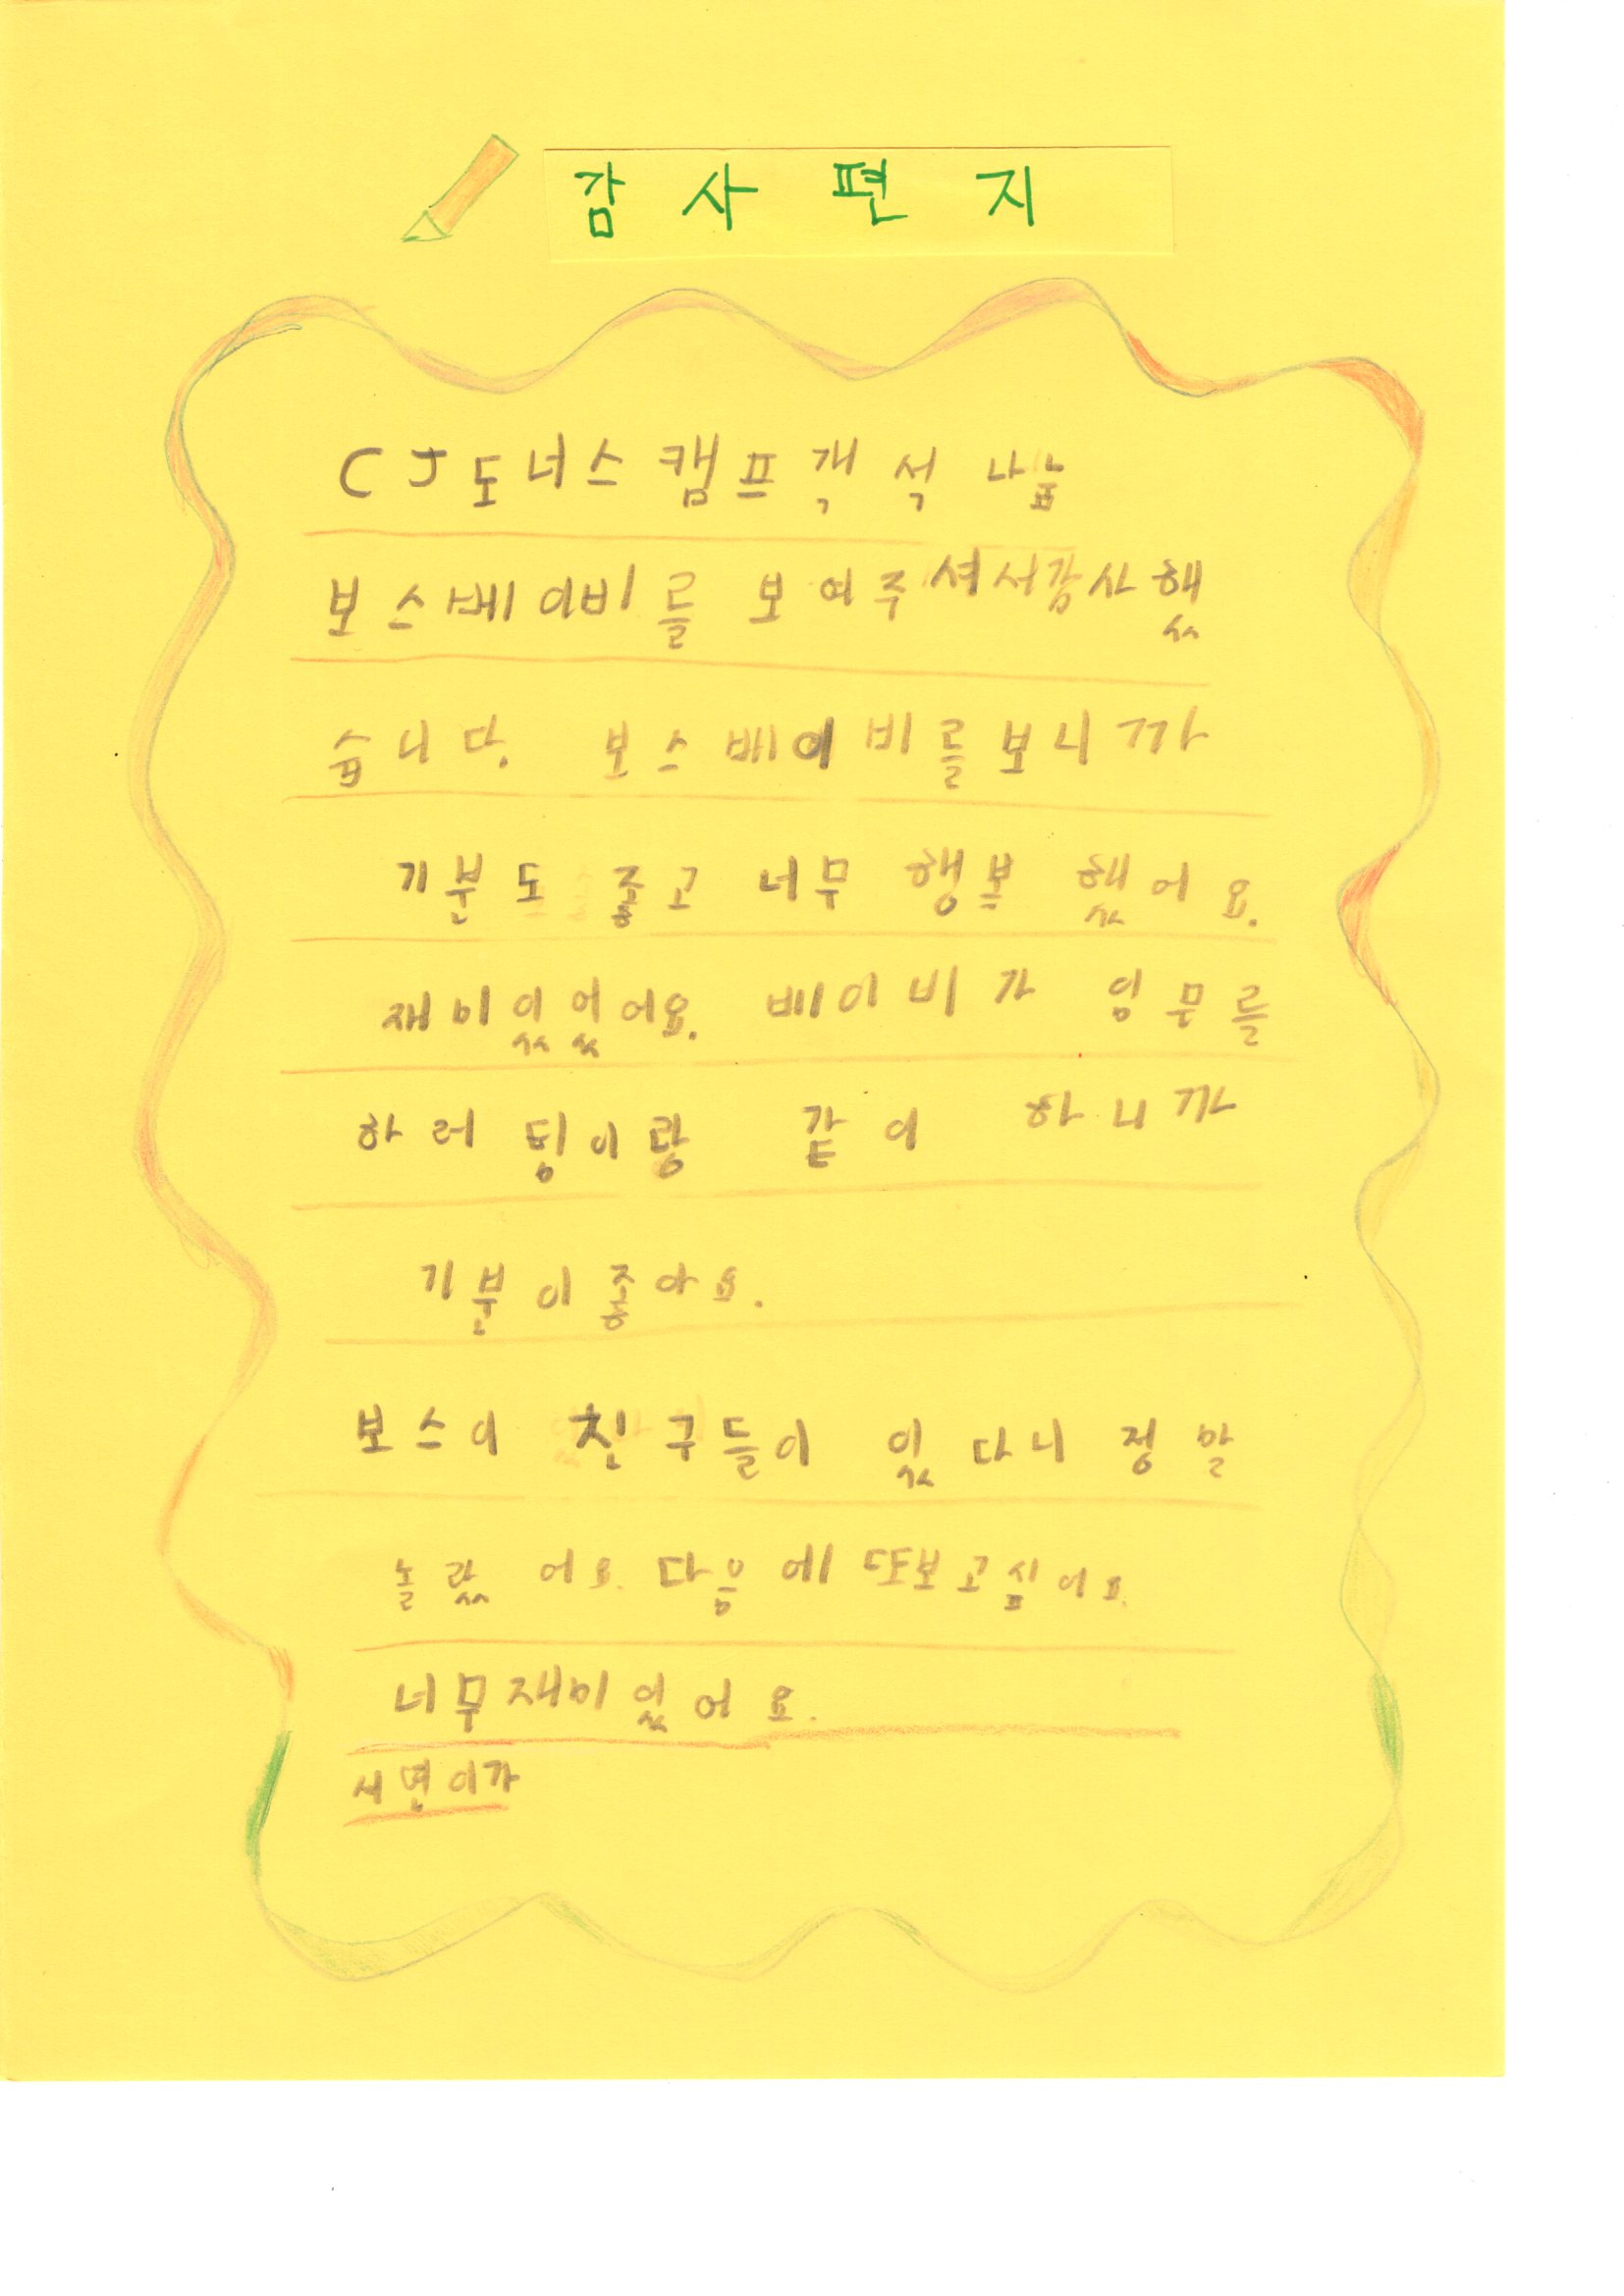 감사편지
CJ도너스캠프객석 나눔
보스베이비를 보여주셔서감사했
습니다. 보스베이비를보니까
기분도 좋고 너무 행복 했어요.
재미있었어요. 베이비가 임무를
하러 팀이랑 같이 하니까
기분이좋아요.
보스이 친구들이 있다니 정말
놀랐 어요. 다음에 또보고싶어요.
너무재미있어요.
서면이가